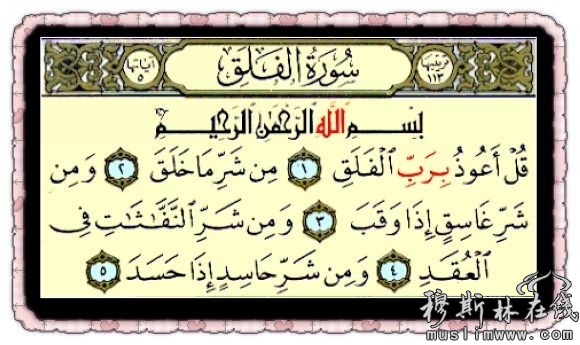 ترتيبها ١١٣ سُورَةُ الفَلَقِ آياتها ٥
بِسْمِ ٱللَّهِ ٱلرَّحْمَٰنِ ٱلرَّحِيمِ
قُلْ أَعُوذُ بِرَبِّ ٱلْفَلَقِ ١ مِن شَرِّ مَا خَلَقَ ٢ وَمِن
شَرِّ غَاسِقٍ إِذَا وَقَبَ ٣ وَمِن شَرِّ ٱلنَّفَّٰثَٰتِ فِى
ٱلْعُقَدِ ٤ وَمِن شَرِّ حَاسِدٍ إِذَا حَسَدَ ٥
穆斯林在线
muslimwww.com